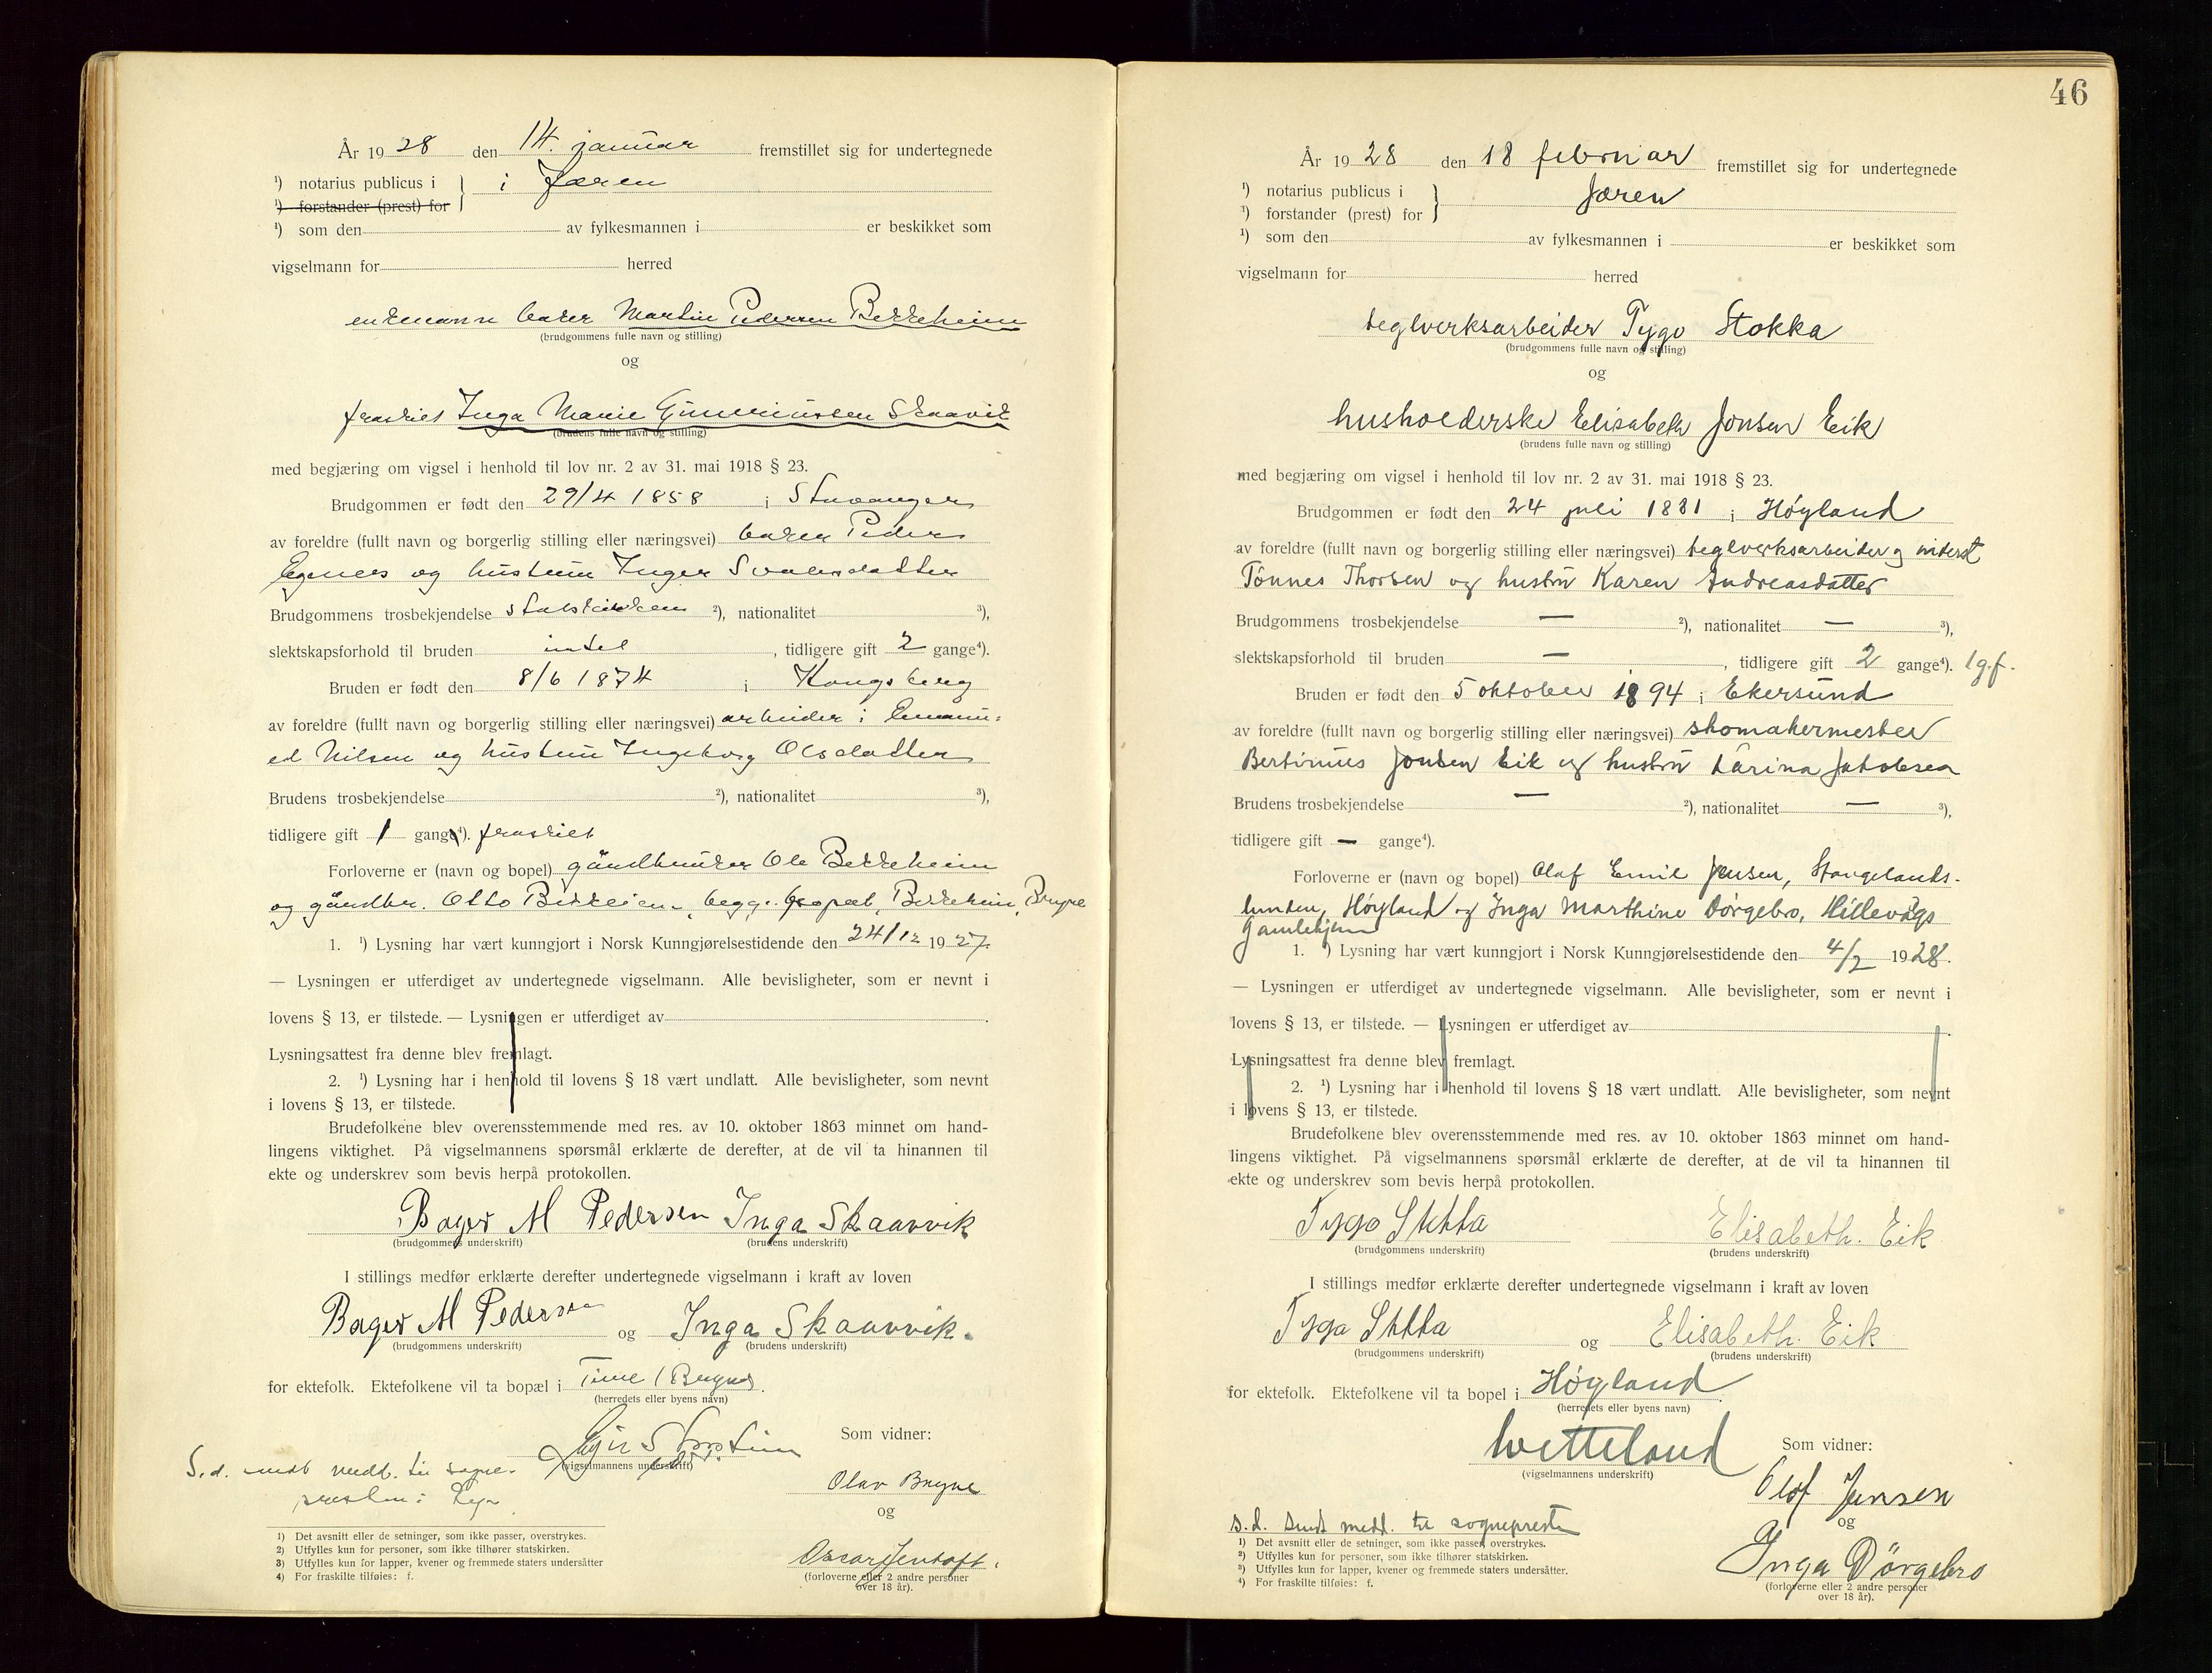 År 19 28 den 14. januar fremstillet sig for undertegnede
¹) notarius publicus i } i Jæren
¹) forstander (prest) for
¹) som den av fylkesmannen i er beskikket som
vigselmann for herred
enkemann baker Martin Pedersen Bekkeheim
(brudgommens fulle navn og stilling)
og
fraskilt Inga Marie Skaavik
(brudens fulle navn og stilling)
med begjæring om vigsel i henhold til lov nr. 2 av 31. mai 1918 § 23.
Brudgommen er født den 29/4 1858 i Stavanger
av foreldre (fullt navn og borgerlig stilling eller næringsvei) baker Peder
og hustru Inger
Brudgommens trosbekjendelse statskirken ²), nationalitet ³),
slektskapsforhold til bruden intet , tidligere gift 2 gange⁴).
Bruden er født den 8/6 1874 i Kongsberg
av foreldre (fullt navn og borgerlig stilling eller næringsvei) arbeider i Emanu=
el Nilsen og hustru Ingeborg Olsdatter
Brudens trosbekjendelse ²), nationalitet ³),
tidligere gift 1 gang⁴). fraskilt
Forloverne er (navn og bopel) gårdbruker Ole Bekkeheim
og gårdbr. Otto begge bopæl, Bekkeheim, Bryne
1. ¹) Lysning har vært kunngjort i Norsk Kunngjørelsestidende den 24/12 1927.
— Lysningen er utferdiget av undertegnede vigselmann. Alle bevisligheter, som er nevnt i
lovens § 13, er tilstede. — Lysningen er utferdiget av .
Lysningsattest fra denne blev fremlagt.
2. ¹) Lysning har i henhold til lovens § 18 vært undlatt. Alle bevisligheter, som nevnt
i lovens § 13, er tilstede.
Brudefolkene blev overensstemmende med res. av 10. oktober 1863 minnet om hand-
lingens viktighet. På vigselmannens spørsmål erklærte de derefter, at de vil ta hinannen til
ekte og underskrev som bevis herpå protokollen.
Bager M Pedersen Inga Skaarvik
(brudgommens underskrift) (brudens underskrift)
I stillings medfør erklærte derefter undertegnede vigselmann i kraft av loven
Bager M Pedersen og Inga Skaarvik.
(brudgommens underskrift) (brudens underskrift)
for ektefolk. Ektefolkene vil ta bopæl i Time / Bryne.
(herredets eller byens navn)
Som vidner:
(vigselmannens underskrift)
S. d. sendt medd. til sogne-
presten i
Olav Bryne
og
Oscar Jentoft.
(forloverne eller 2 andre personer
over 18 år).
1) Det avsnitt eller de setninger, som ikke passer, overstrykes.
2) Utfylles kun for personer, som ikke tilhører statskirken.
3) Utfylles kun for lapper, kvener og fremmede staters undersåtter
4) For fraskilte tilføies: f.
46
År 19 28 den 18 februar fremstillet sig for undertegnede
¹) notarius publicus i } Jæren
¹) forstander (prest) for
¹) som den av fylkesmannen i er beskikket som
vigselmann for herred
teglverksarbeider Tygo Stokka
(brudgommens fulle navn og stilling)
og
husholderske Elisabeth Jonsen Eik
(brudens fulle navn og stilling)
med begjæring om vigsel i henhold til lov nr. 2 av 31. mai 1918 § 23.
Brudgommen er født den 24 juli 1881 i Høyland
av foreldre (fullt navn og borgerlig stilling eller næringsvei) teglverksarbeider og inderst
Tønnes Thorsen og hustru Karen Andreasdatter
Brudgommens trosbekjendelse — ²), nationalitet — ³),
slektskapsforhold til bruden — , tidligere gift 2 gange⁴). 1 g. f.
Bruden er født den 5 oktober 1894 i Ekersund
av foreldre (fullt navn og borgerlig stilling eller næringsvei) skomakermester
Bertinius Jonsen Eik og hustru Karina Jakobsen
Brudens trosbekjendelse — ²), nationalitet — ³),
tidligere gift — gange⁴).
Forloverne er (navn og bopel) Olaf Emil Jensen, Stangelands-
lunden, Høyland og Inga Marthine Dørgebro, Hillevågs
gamlehjem
1. ¹) Lysning har vært kunngjort i Norsk Kunngjørelsestidende den 4/2 1928.
— Lysningen er utferdiget av undertegnede vigselmann. Alle bevisligheter, som er nevnt i
lovens § 13, er tilstede. — Lysningen er utferdiget av .
Lysningsattest fra denne blev fremlagt.
2. ¹) Lysning har i henhold til lovens § 18 vært undlatt. Alle bevisligheter, som nevnt
i lovens § 13, er tilstede.
Brudefolkene blev overensstemmende med res. av 10. oktober 1863 minnet om hand-
lingens viktighet. På vigselmannens spørsmål erklærte de derefter, at de vil ta hinannen til
ekte og underskrev som bevis herpå protokollen.
Tygo Stokka Elisabeth. Eik
(brudgommens underskrift) (brudens underskrift)
I stillings medfør erklærte derefter undertegnede vigselmann i kraft av loven
Tygo Stokka og Elisabeth. Eik
(brudgommens underskrift) (brudens underskrift)
for ektefolk. Ektefolkene vil ta bopel i Høyland.
(herredets eller byens navn)
Wetteland Som vidner:
(vigselmannens underskrift)
Olaf Jensen
og
s. d. sendt medd. til sognepresten
Inga Dörgebro
(forloverne eller 2 andre personer
over 18 år).
1) Det avsnitt eller de setninger, som ikke passer, overstrykes.
²) Utfylles kun for personer, som ikke tilhører statskirken.
³) Utfylles kun for lapper, kvener og fremmede staters undersåtter.
⁴) For fraskilte tilføies: f.